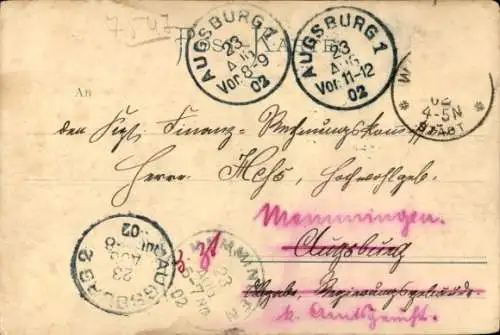 7.547
Post Karte
AUGSBURG 1
23
AUG
Vor. 8-9
02
AUGSBURG 1
23
AUG
Vor. 11-12
02
02
4-5N
STADT
An
den Kgl. Finanz-Rechnungskommissär
Herrn Hess, Hochwohlgeb.
Memmingen.
z. Zt.
Augsburg
k. Amtsgericht.
AUGSBURG 2
23
AUG
02
MEMMINGEN
23
02